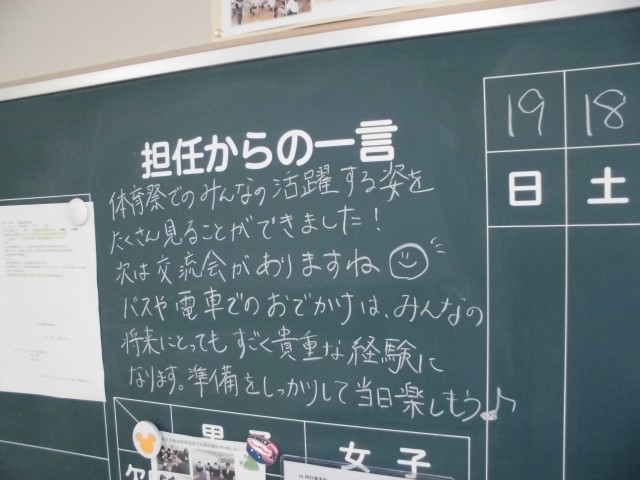 担任からの一言
体育祭でのみんなの活躍する姿を
たくさん見ることができました!
次は交流会がありますね
バスや電車でのおでかけは、みんなの
将来にとってもすごく貴重な経験に
なります。準備をしっかりして当日楽しもう♪
19 18
日 土
男子 女子
欠